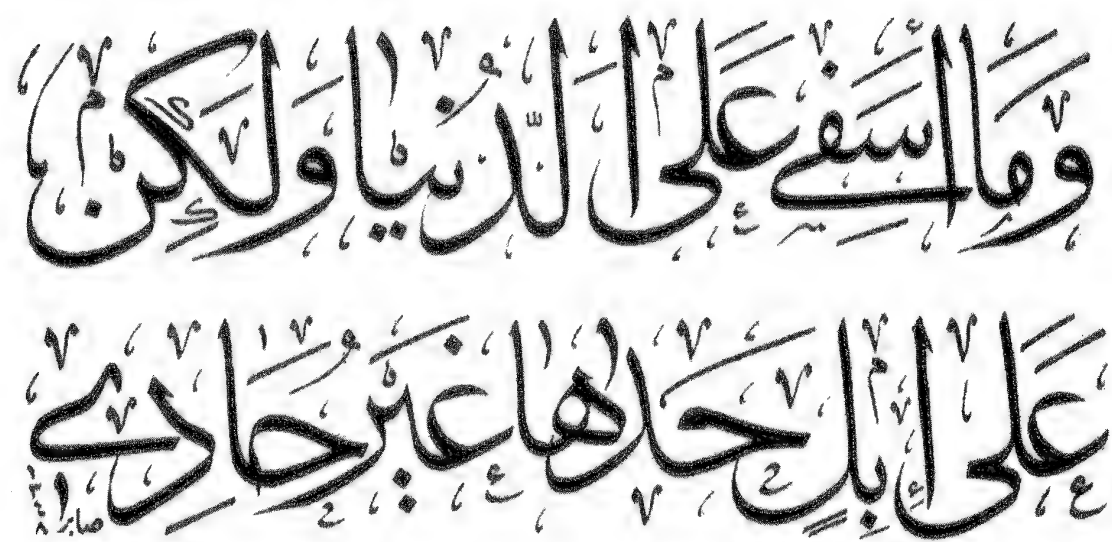 وَمَا أَسَفِي عَلَى الدُّنْيَا وَلَكِنْ
عَلَى إِبِلٍ حَدَاهَا غَيْرُ حَادِي
صابر ١٣٤٨